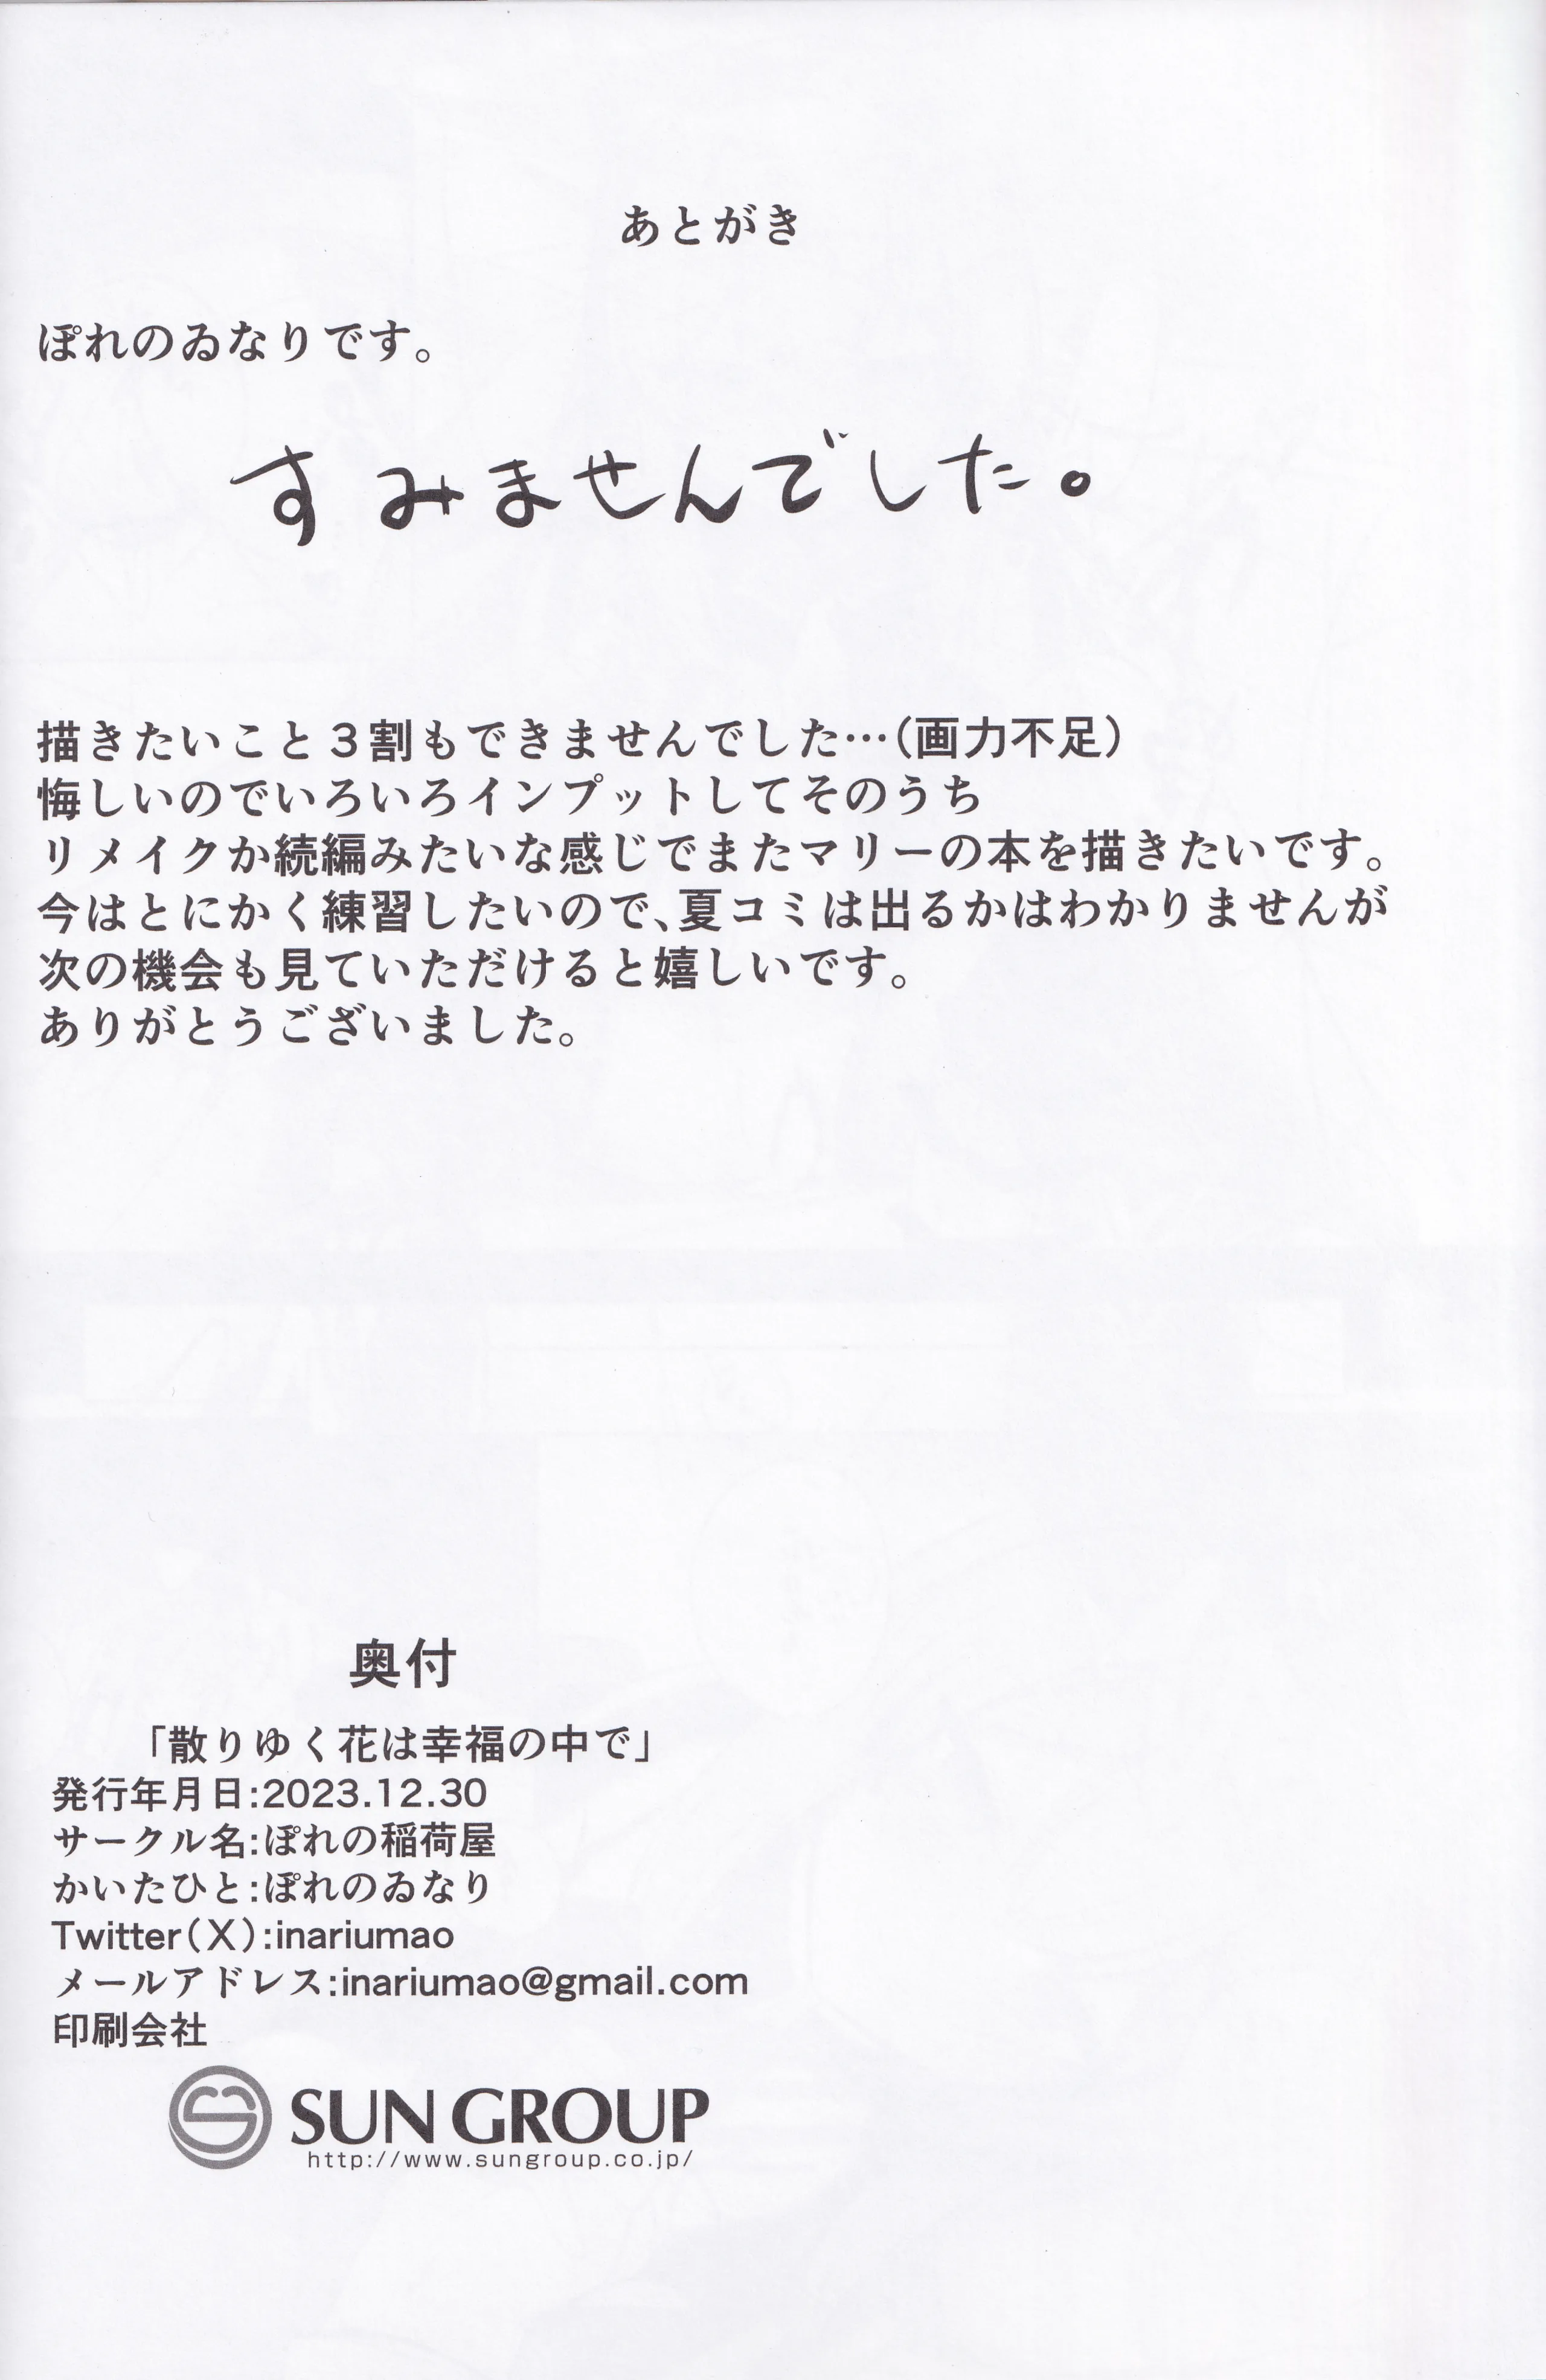 あとがき
ぽれのゐなりです。
すみませんでした。
描きたいこと３割もできませんでした…（画力不足）
悔しいのでいろいろインプットしてそのうち
リメイクか続編みたいな感じでまたマリーの本を描きたいです。
今はとにかく練習したいので、夏コミは出るかはわかりませんが
次の機会も見ていただけると嬉しいです。
ありがとうございました。
奥付
「散りゆく花は幸福の中で」
発行年月日:2023.12.30
サークル名:ぽれの稲荷屋
かいたひと:ぽれのゐなり
Twitter（X）:inariumao
メールアドレス:inariumao@gmail.com
印刷会社
SUN GROUP
http://www.sungroup.co.jp/